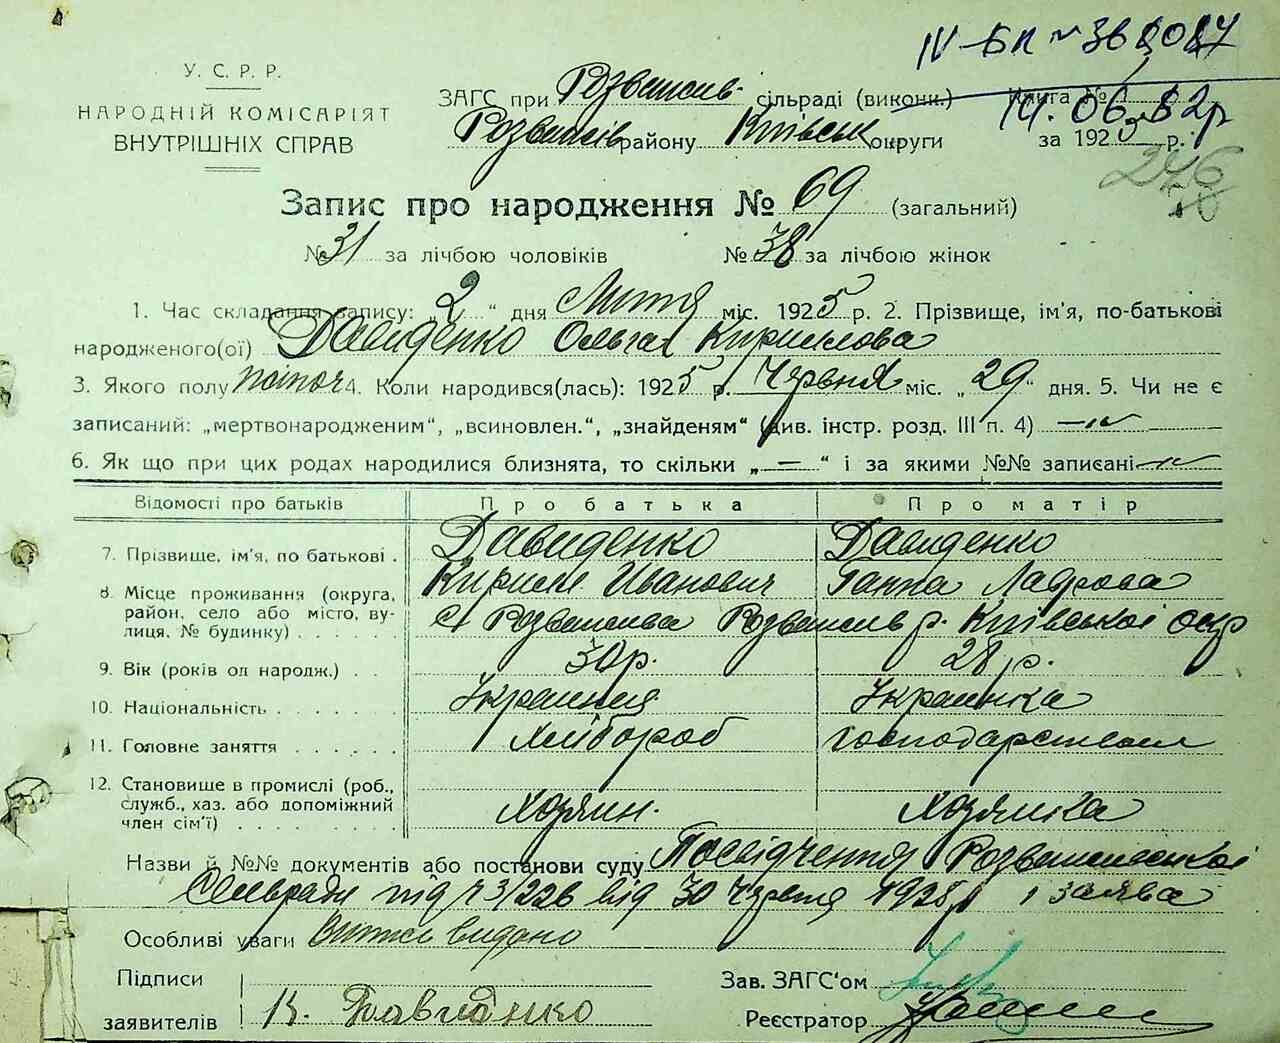 IV-БК № 368087
У. С. Р. Р.
НАРОДНІЙ КОМІСАРІЯТ
ВНУТРІШНІХ СПРАВ
ЗАГС при Розважив. сільраді (виконк.) Книга № 1
14.06.82р
Розважів району Київськ округи за 1925 р.
246
Запис про народження № 69 (загальний)
№ 31 за лічбою чоловіків № 38 за лічбою жінок
1. Час складання запису: „2“ дня Липня міс. 1925 р. 2. Прізвище, ім'я, по-батькові
народженого(ої) Давиденко Ольга Кирилова
3. Якого полу жіноч 4. Коли народився(лась): 1925 р. Червня міс. „29“ дня. 5. Чи не є
записаний: „мертвонародженим“, „всиновлен.“, „знайденям“ (див. інстр. розд. III п. 4) —
6. Як що при цих родах народилися близнята, то скільки „—“ і за якими №№ записані
Відомості про батьків Про батька Про матір
7. Прізвище, ім'я, по батькові . Давиденко Кирило Иванович Давиденко Ганна Лаврова
8. Місце проживання (округа, район, село або місто, вулиця, № будинку) . . . . . с. Розважива Розважив р. Київської окр
9. Вік (років од народж.) . . 30 р. 28 р.
10. Національність . . . . . Украинця Украинка
11. Головне заняття . . . . . . Хлібороб господарством
12. Становище в промислі (роб., служб., хаз. або допоміжний член сім'ї) . . . . . . . . Хозяин. Хозяйка
Назви й №№ документів або постанови суду Посвідчення Розважевської
Сельради під ч 3/226 від 30 червня 1925 р і заява
Особливі уваги Витяг видано
Підписи
заявителів К. Давиденко
Зав. ЗАГС‘ом
Реєстратор